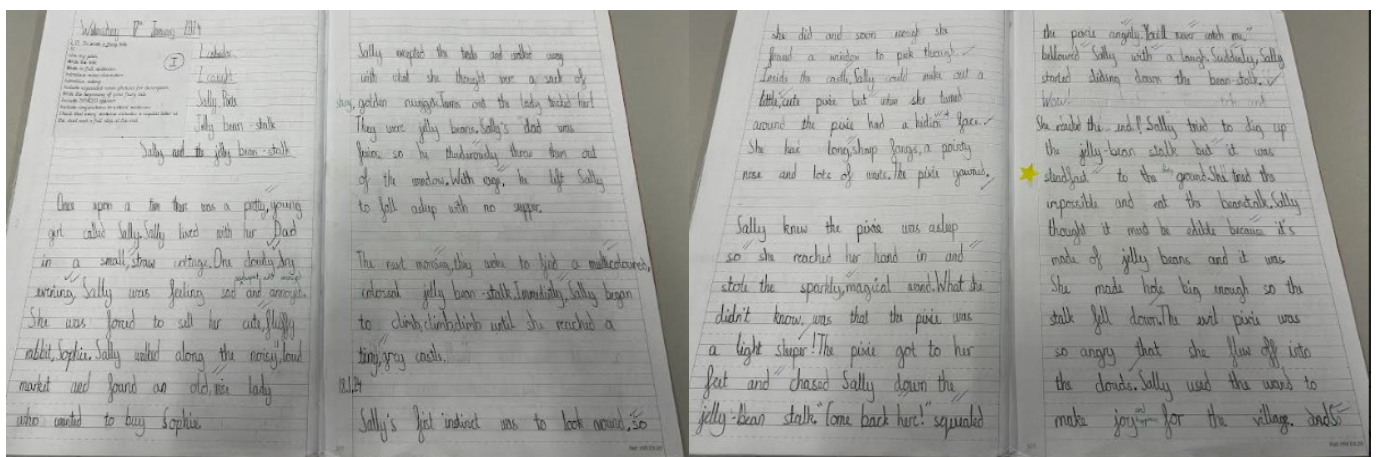 Wednesday 17th January 2024
L.O. To write a fairy tale
Write the title
Write in full sentences
Introduce main characters
Introduce setting
I
Sally, Pixie
Jelly bean-stalk
Sally and the jelly bean-stalk
Once upon a time there was a pretty, young
girl called Sally. Sally lived with her Dad
in a small, straw cottage. One cloudy, dry
evening, Sally was feeling sad and annoyed.
She was forced to sell her cute, fluffy
rabbit, Sophie. Sally walked along the noisy, loud
market and found an old, nice lady
who wanted to buy Sophie.
Sally accepted the trade and walked away
with what she thought were a sack of
golden nuggets. Turns out the lady tricked her!
They were jelly beans. Sally's dad was
furious so he thunderously threw them out
of the window. With rage, he left Sally
to fall asleep with no supper.
The next morning, they woke to find a multicoloured,
colossal jelly bean-stalk. Immediatly, Sally began
to climb, climb, climb until she reached a
tiny, grey castle.
18.1.24
Sally's first instinct was to look around, so
she did and soon enough she
found a window to peek through.
Inside the castle, Sally could make out a
little, cute pixie but when she turned
around the pixie had a hidios face.
She had long, sharp fangs, a pointy
nose and lots of warts. The pixie yawned.
Sally knew the pixie was asleep
so she reached her hand in and
stole the sparkly, magical wand. What she
didn't know, was that the pixie was
a light sleeper! The pixie got to her
feet and chased Sally down the
jelly-bean stalk. "Come back here!" squealed
the pixie angrily. "You'll never catch me,"
bellowed Sally with a laugh. Suddenly, Sally
started sliding down the bean-stalk.
Wow!
She reached the end! Sally tried to dig up
the jelly-bean stalk but it was
steadfast to the ground. She tried the
impossible and eat the beanstalk. Sally
thought it must be edible because it's
made of jelly beans and it was
She made hole big enough so the
stalk fell down. The evil pixie was
so angry that she flew off into
the clouds. Sally used the wand to
make joy for the village.